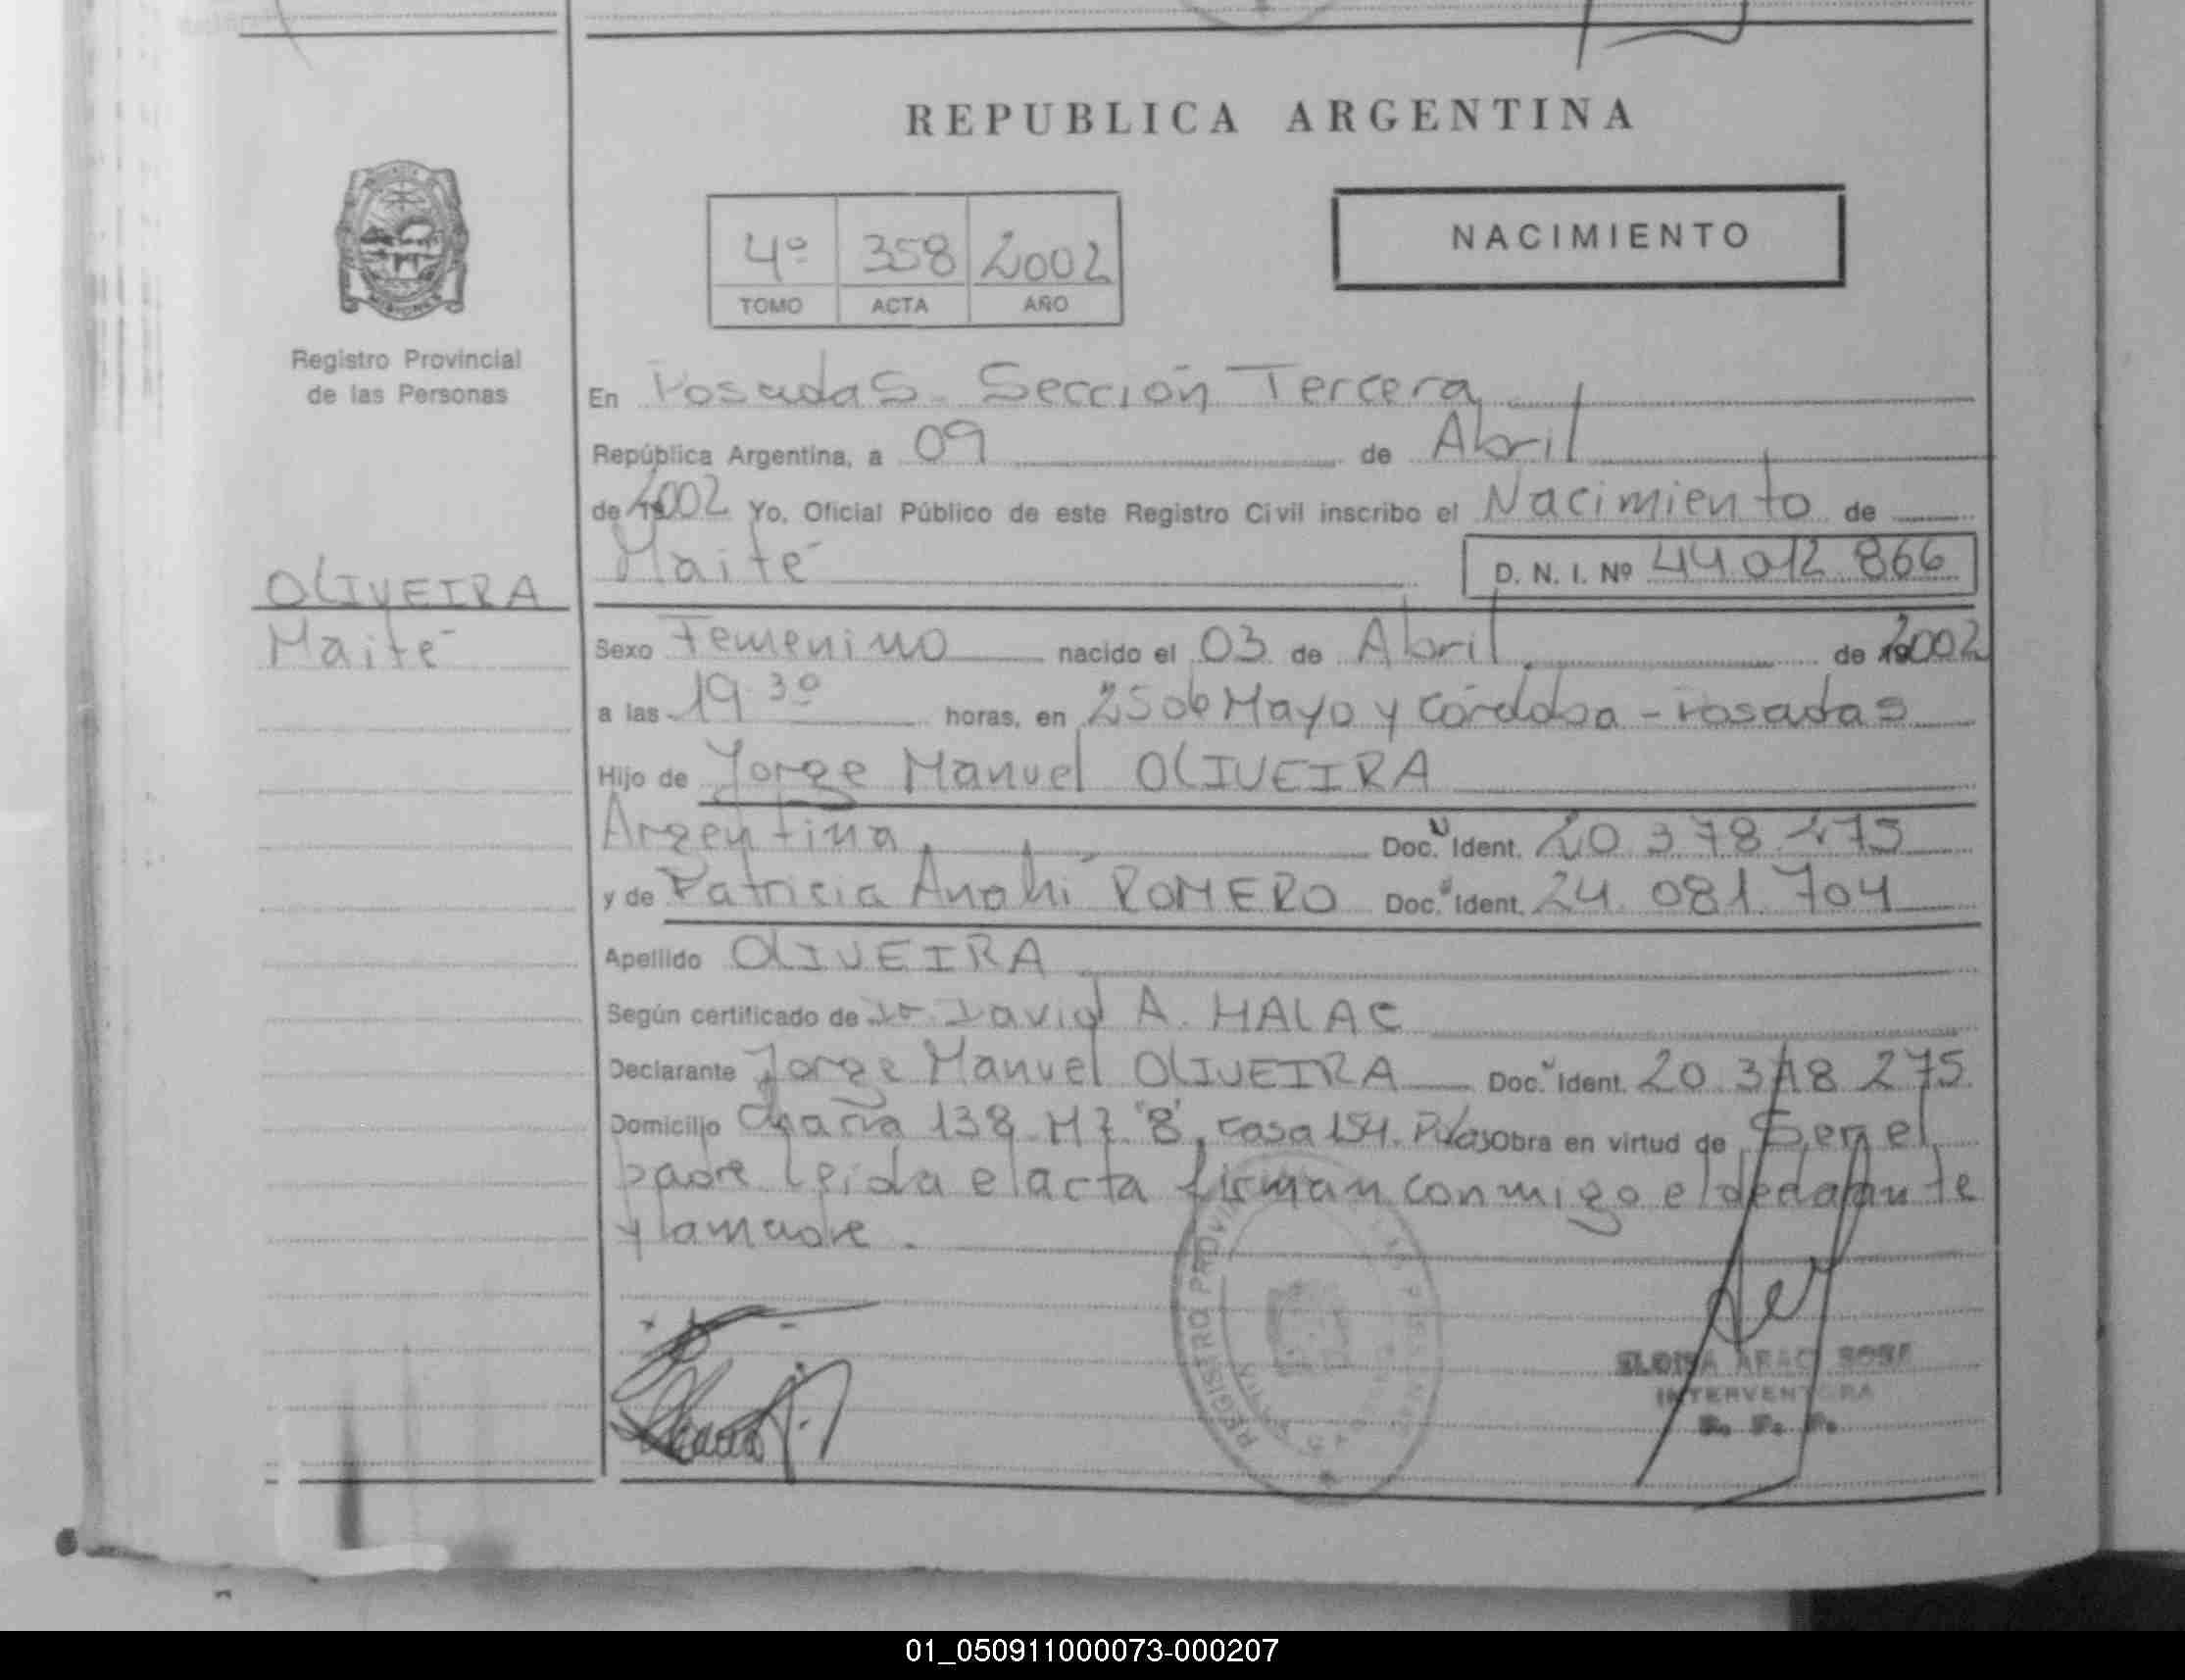 REPUBLICA ARGENTINA
NACIMIENTO
4º 358 2002
TOMO ACTA AÑO
Registro Provincial
de las Personas
En Posadas - Sección Tercera
República Argentina, a 09 de Abril
de 2002 Yo, Oficial Público de este Registro Civil inscribo el Nacimiento de
Maité D. N. I. Nº 44.012.866
OLIVEIRA
Maité
Sexo Femenino nacido el 03 de Abril de 2002
a las 19 30 horas, en 25 de Mayo y Córdoba - Posadas
Hijo de Jorge Manuel OLIVEIRA
Argentina Doc. Ident. 20.378.275
y de Patricia Anahí ROMERO Doc. Ident. 24.081.704
Apellido OLIVEIRA
Según certificado de Dr. David A. HALAC
Declarante Jorge Manuel OLIVEIRA Doc. Ident. 20.378.275
Domicilio 138 Mz "8", casa 154. Pdas Obra en virtud de Ser el
padre Leida el acta firman conmigo el declarante
y la madre.
REGISTRO PROVINCIAL DE LAS PERSONAS
INTERVENTORA